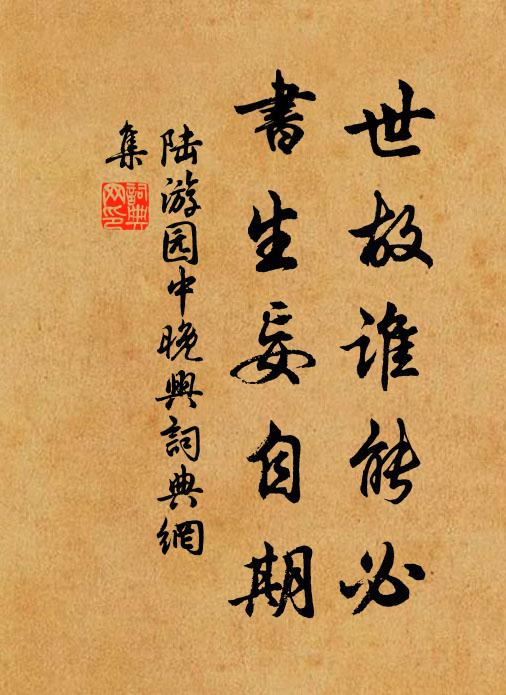 世故谁能必
書生妄自期
陆游园中晚興詞典網
集
詞典网印